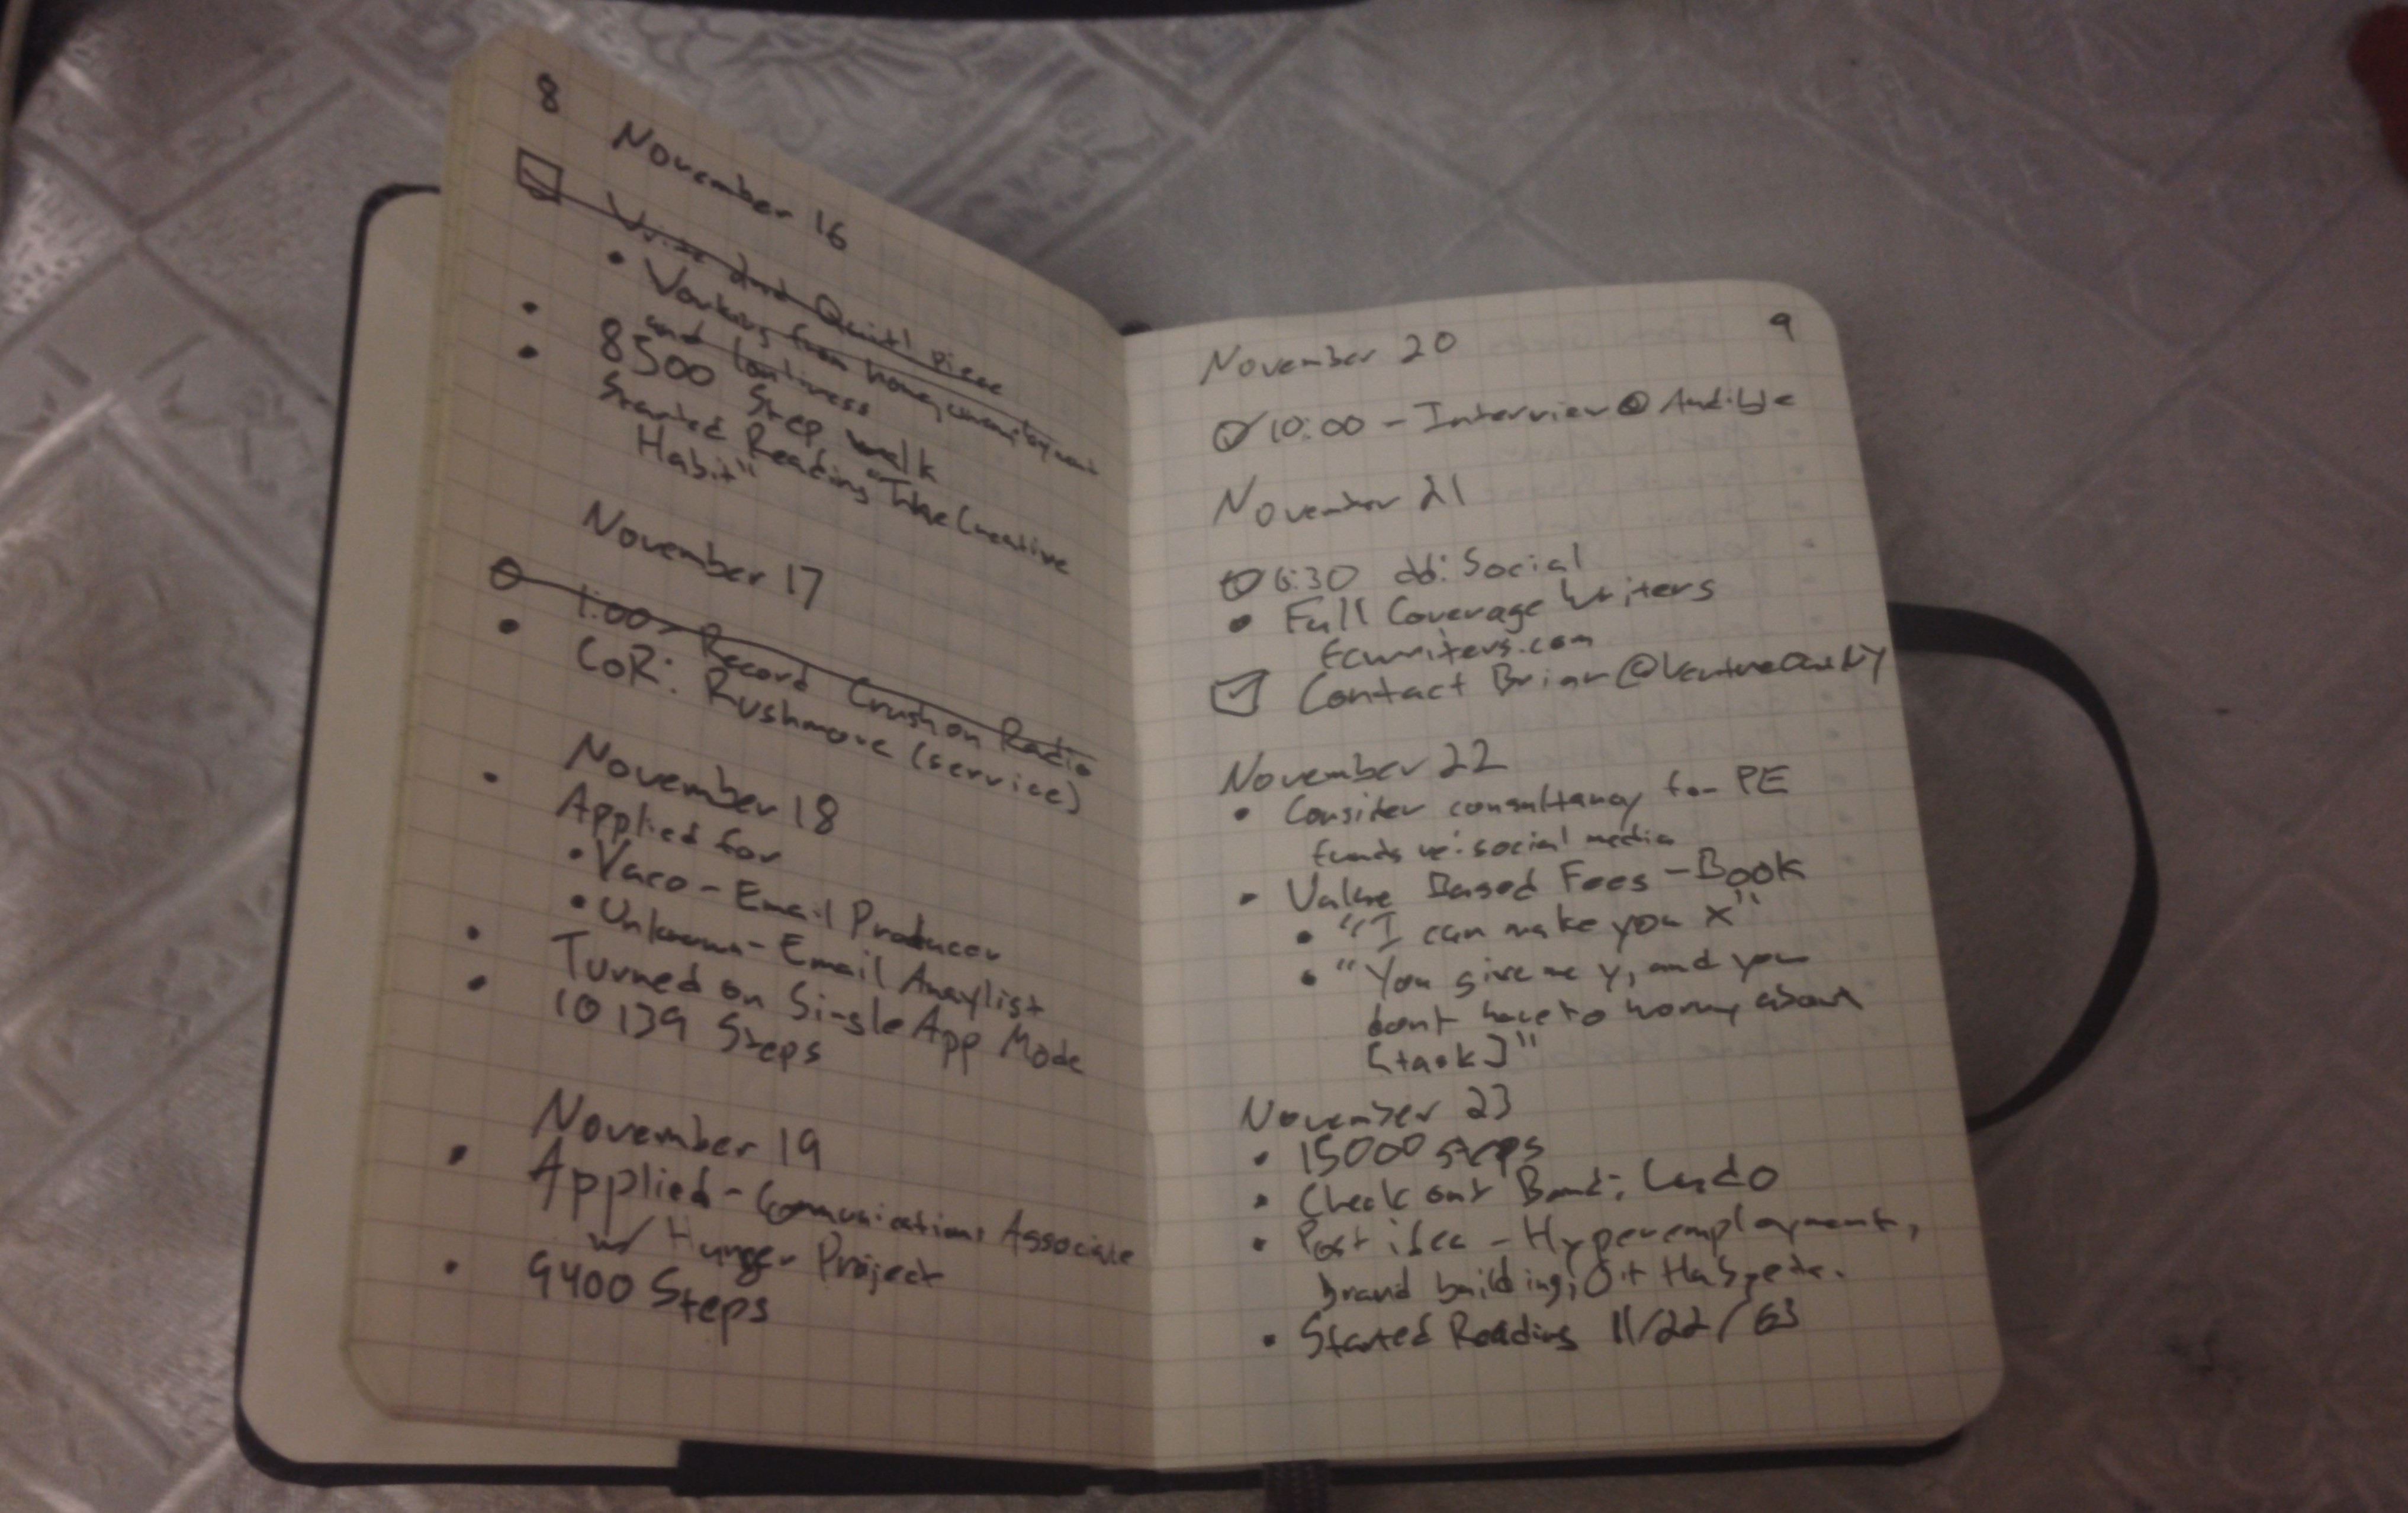 8
November 16
Write and Quit! piece
• Working from home, unemployment
and loneliness
• 8500 Step walk
• Started Reading "The Creative
Habit"
November 17
1:00 - Record Crush on Radio
• CoR: Rushmore (service)
November 18
• Applied for
• Vaco - Email Producer
• Unknown - Email Anaylist
• Turned on Single App Mode
• 10139 Steps
November 19
• Applied - Communications Associate
w/ Hunger Project
• 9400 Steps
9
November 20
10:00 - Interview @ Audible
November 21
6:30 Social
• Full Coverage Writers
fcwriters.com
Contact Brian @
November 22
• Consider consultancy for PE
funds re: social media
• Value Based Fees - Book
• "I can make you X"
• "You give me y, and you
dont have to worry about
[task]"
November 23
• 15000 steps
• Check out Band:
• Post idea - Hyperemployment,
brand building, etc.
• Started Reading 11/22/63